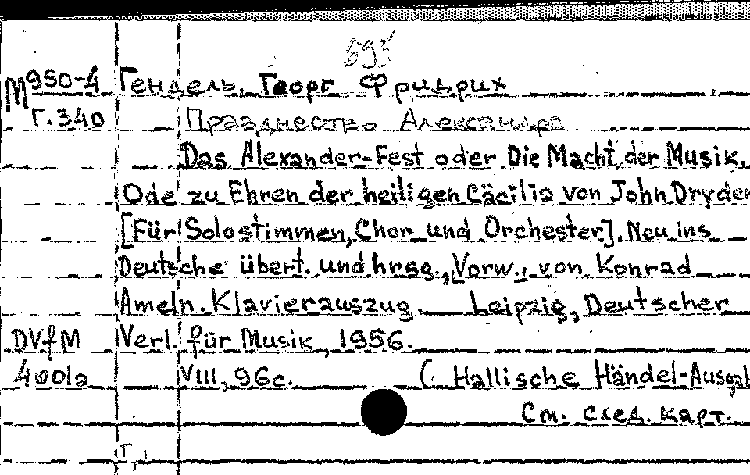 595
М950-4 Гендель, Георг Фридрих
Г.340 Празднество Александра
Das Alexander-Fest oder Die Macht der Musik.
Ode zu Ehren der heiligen Cäcilia von John Dryden
[Für Solostimmen, Chor und Orchester]. Neu ins
Deutsche übert. und hrsg., Vorw., von Konrad
Ameln. Klavierauszug. Leipzig, Deutscher
DVfM Verl. für Musik, 1956.
4001a VIII, 96c. (Hallische Händel-Ausgab
См. след. карт.